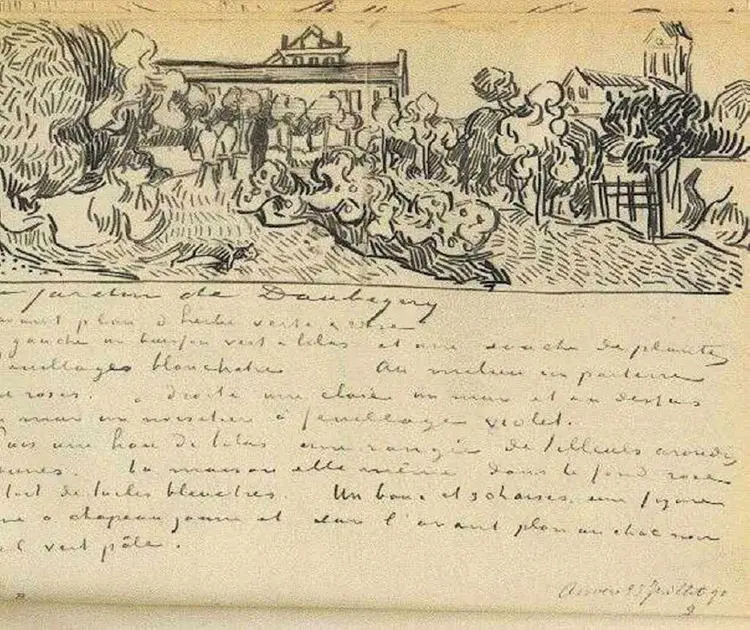 jardin de Daubigny
avant plan d'herbe verte & rose
gauche un buisson vert & lilas et une souche de plantes
feuillages blanchatres Au milieu un parterre
de roses. à droite une claie un mur et au dessus
mur un noisetier à feuillage violet.
Puis une haie de lilas une rangée de tilleuls arrondis
jaunes. La maison elle même dans le fond rose
toit de tuiles bleuatres. Un banc et 3 chaises, une figure
à chapeau jaune et sur l'avant plan un chat noir
vert pâle.
Auvers 23 Juillet 90